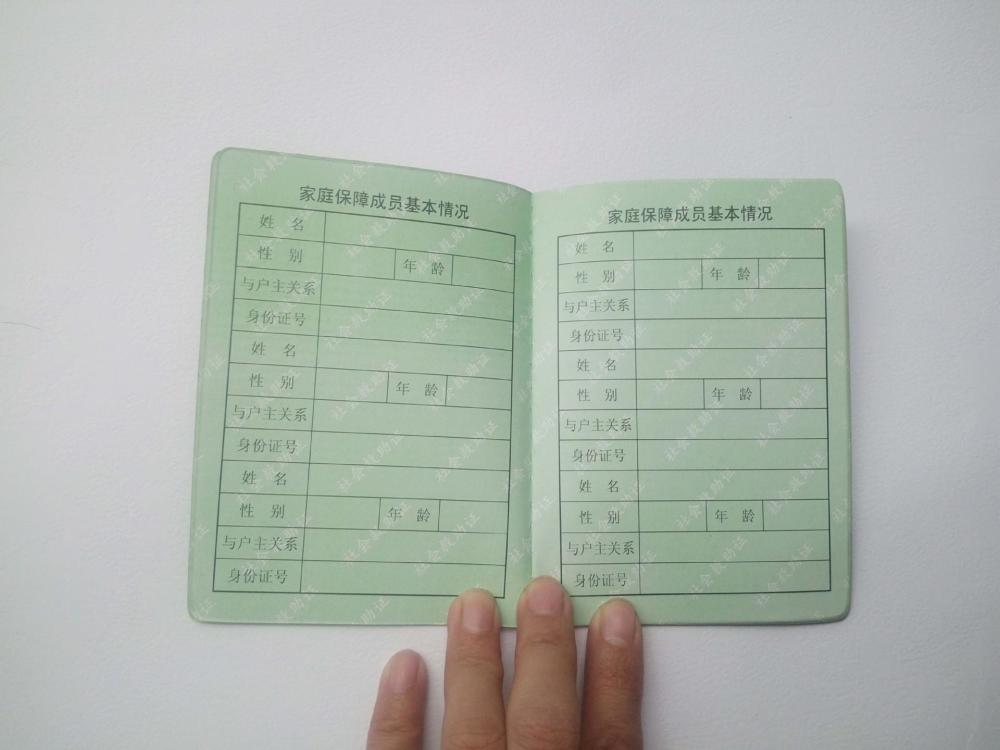 家庭保障成员基本情况
姓 名
性 别 年 龄
与户主关系
身份证号
姓 名
性 别 年 龄
与户主关系
身份证号
姓 名
性 别 年 龄
与户主关系
身份证号
家庭保障成员基本情况
姓 名
性 别 年 龄
与户主关系
身份证号
姓 名
性 别 年 龄
与户主关系
身份证号
姓 名
性 别 年 龄
与户主关系
身份证号
社会救助证